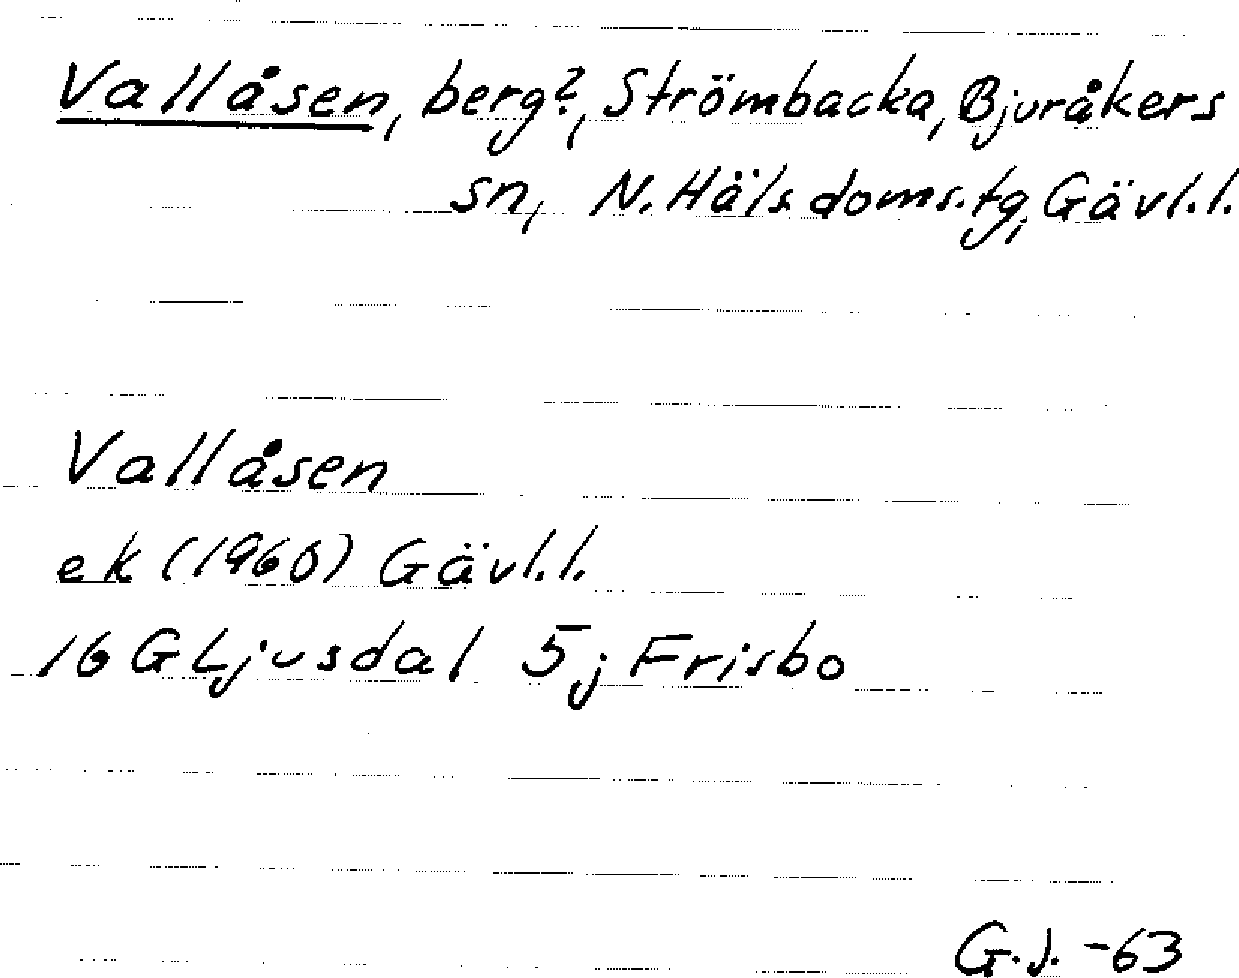 Vallåsen, berg?, Strömbacka, Bjuråkers
sn, N. Häls. doms. tg, Gävl. l.
Vallåsen
ek (1960) Gävl. l.
16 G Ljusdal 5 j Frisbo
G. J. -63